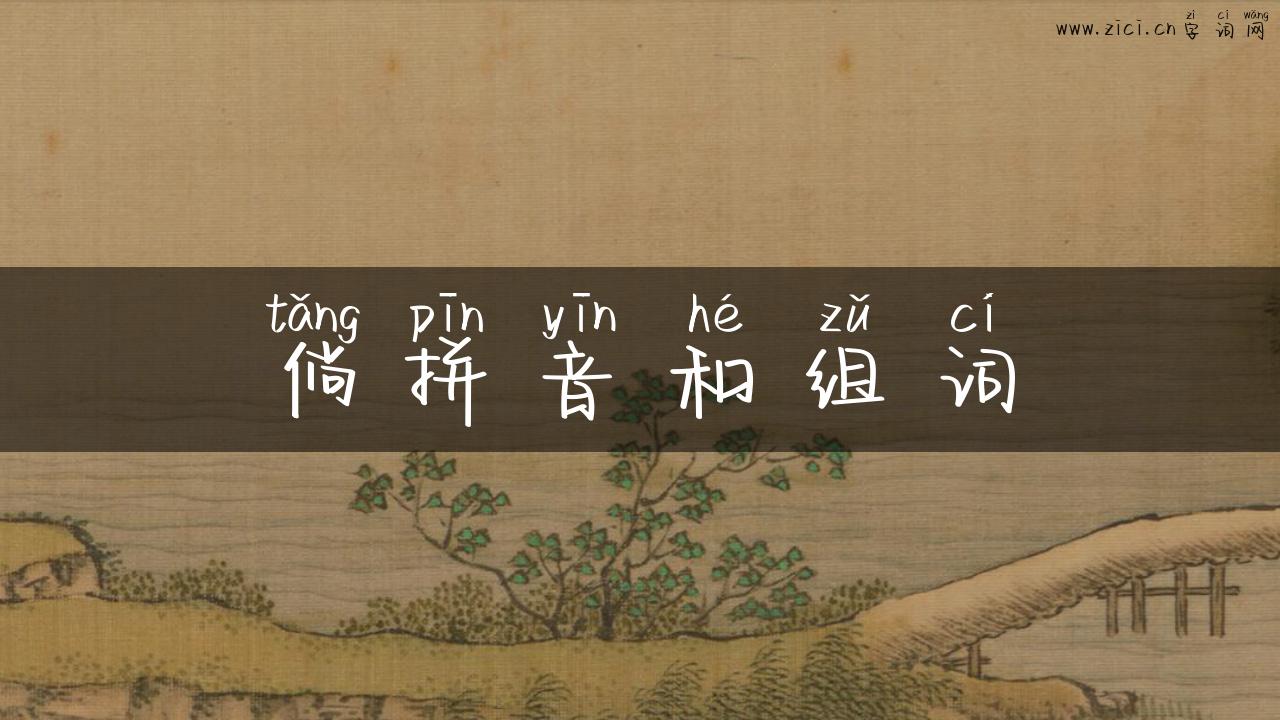 zì cí wǎng
www.zici.cn 字词网
tǎng pīn yīn hé zǔ cí
倘拼音和组词